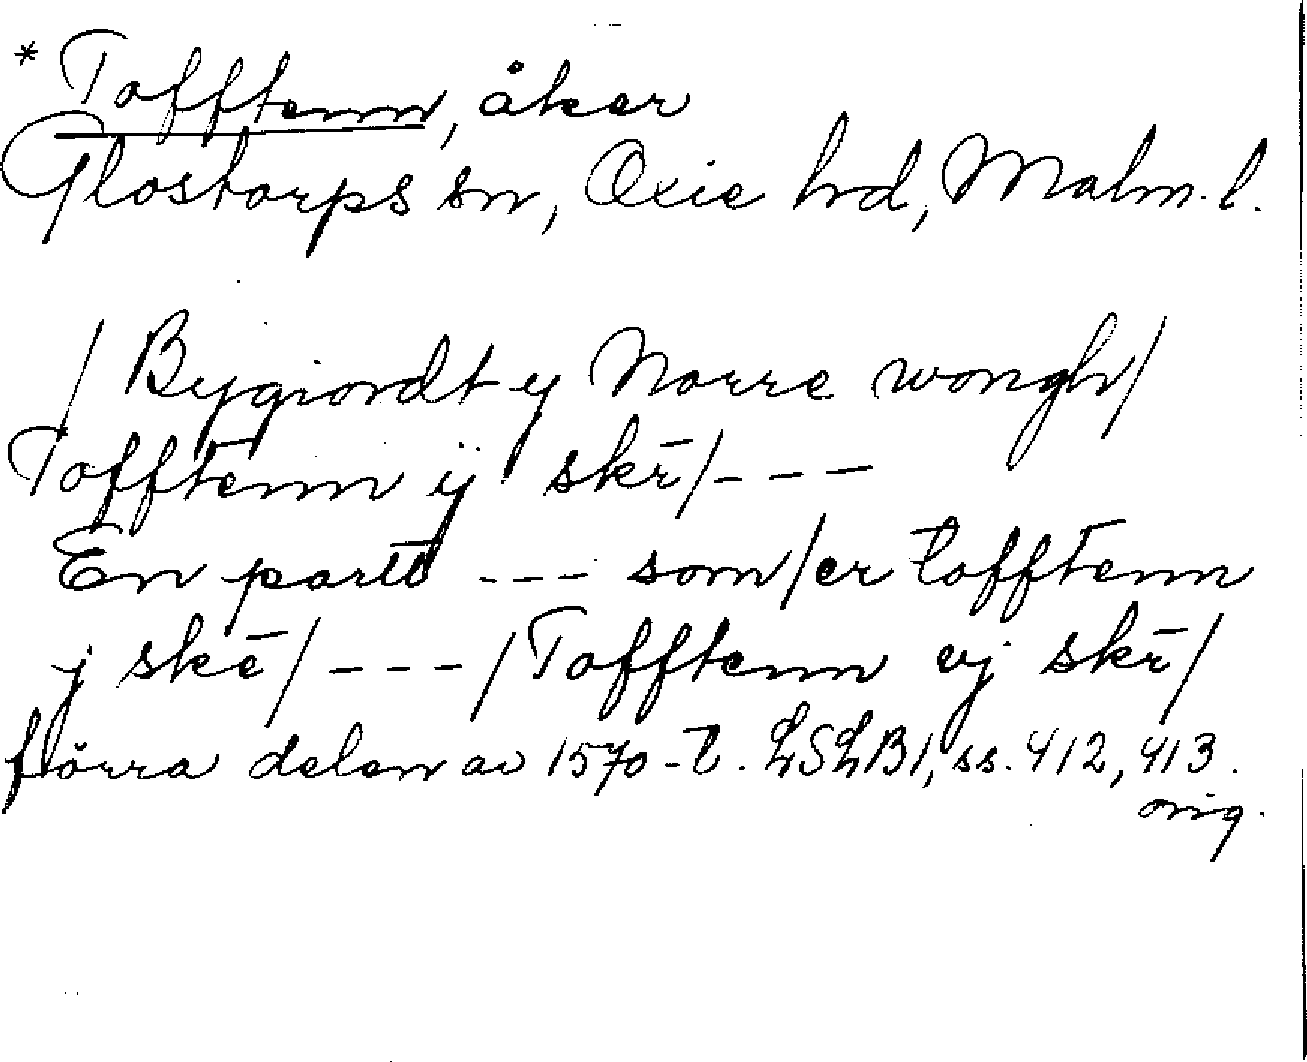 * Tofftenn, åker
Glostorps sn, Oxie hd, Malm. l.
/ Bygiordt y Norre wongh/
Tofftenn ij skr̄/ - - -
En partt - - - som/er tofftenn
j skē/ - - - /Tofftenn vj skr̄/
förra delen av 1570-t. LSLB1, ss. 412, 413.
orig.